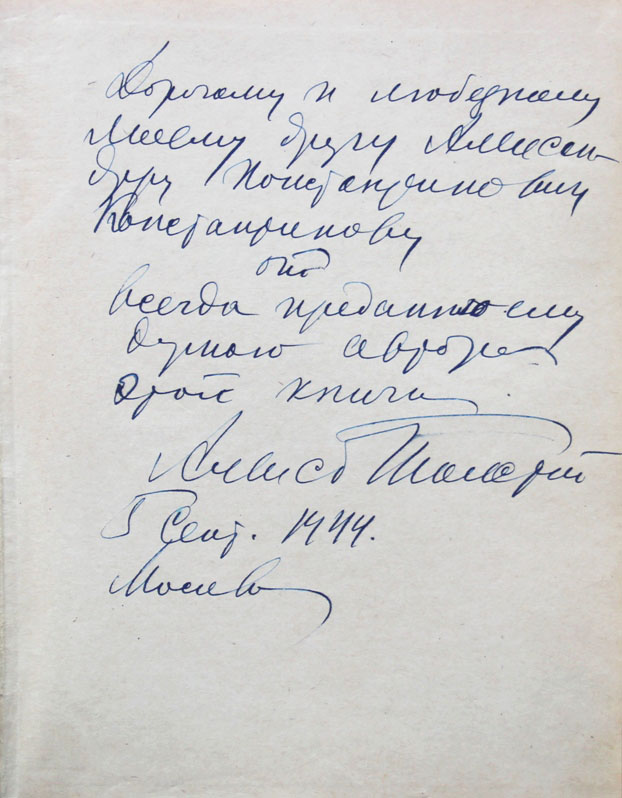 Дорогому и любезному
моему другу Алексан-
дру Константиновичу
Константинову
от
всегда преданного ему
душою автора
этой книги
5 Сент. 1944.
Москва